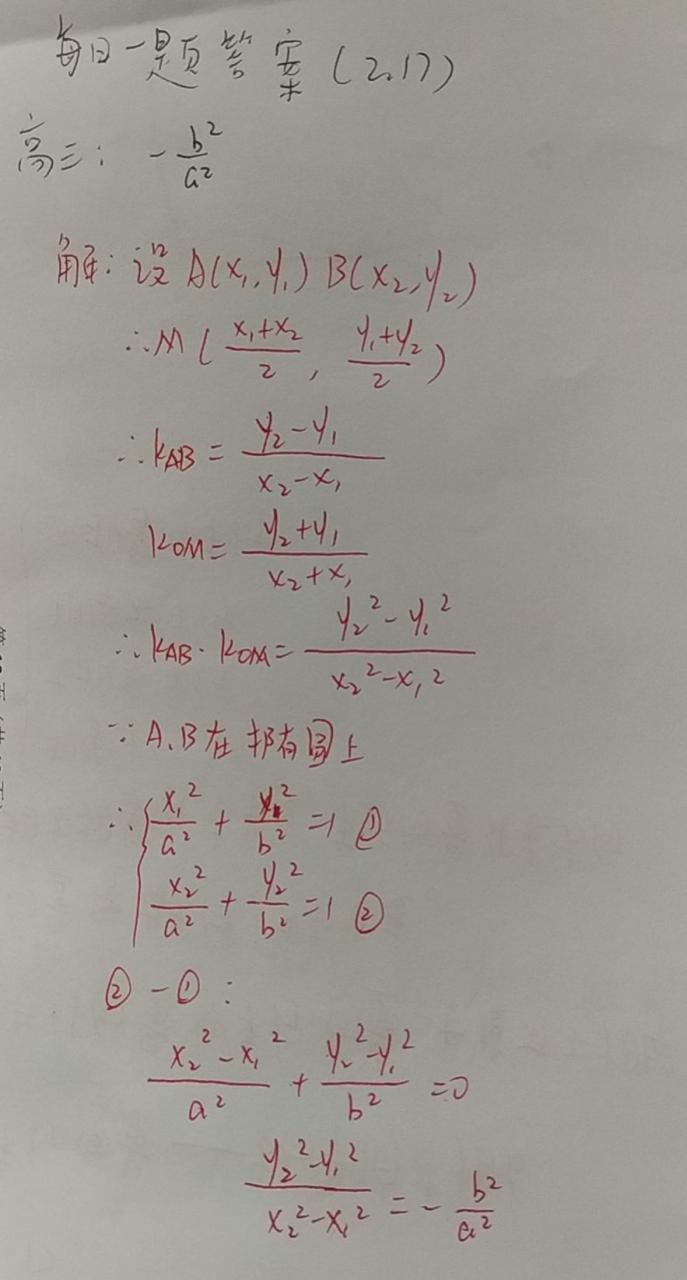 每日一题答案(2.17)
高三: -b²/a²
解: 设 A(x₁,y₁) B(x₂,y₂)
∴M((x₁+x₂)/2, (y₁+y₂)/2)
∴k_AB = (y₂-y₁)/(x₂-x₁)
k_OM = (y₂+y₁)/(x₂+x₁)
∴k_AB·k_OM = (y₂²-y₁²)/(x₂²-x₁²)
∵A、B在椭圆上
∴{x₁²/a² + y₁²/b² = 1 ①
x₂²/a² + y₂²/b² = 1 ②
②-①:
(x₂²-x₁²)/a² + (y₂²-y₁²)/b² = 0
(y₂²-y₁²)/(x₂²-x₁²) = -b²/a²